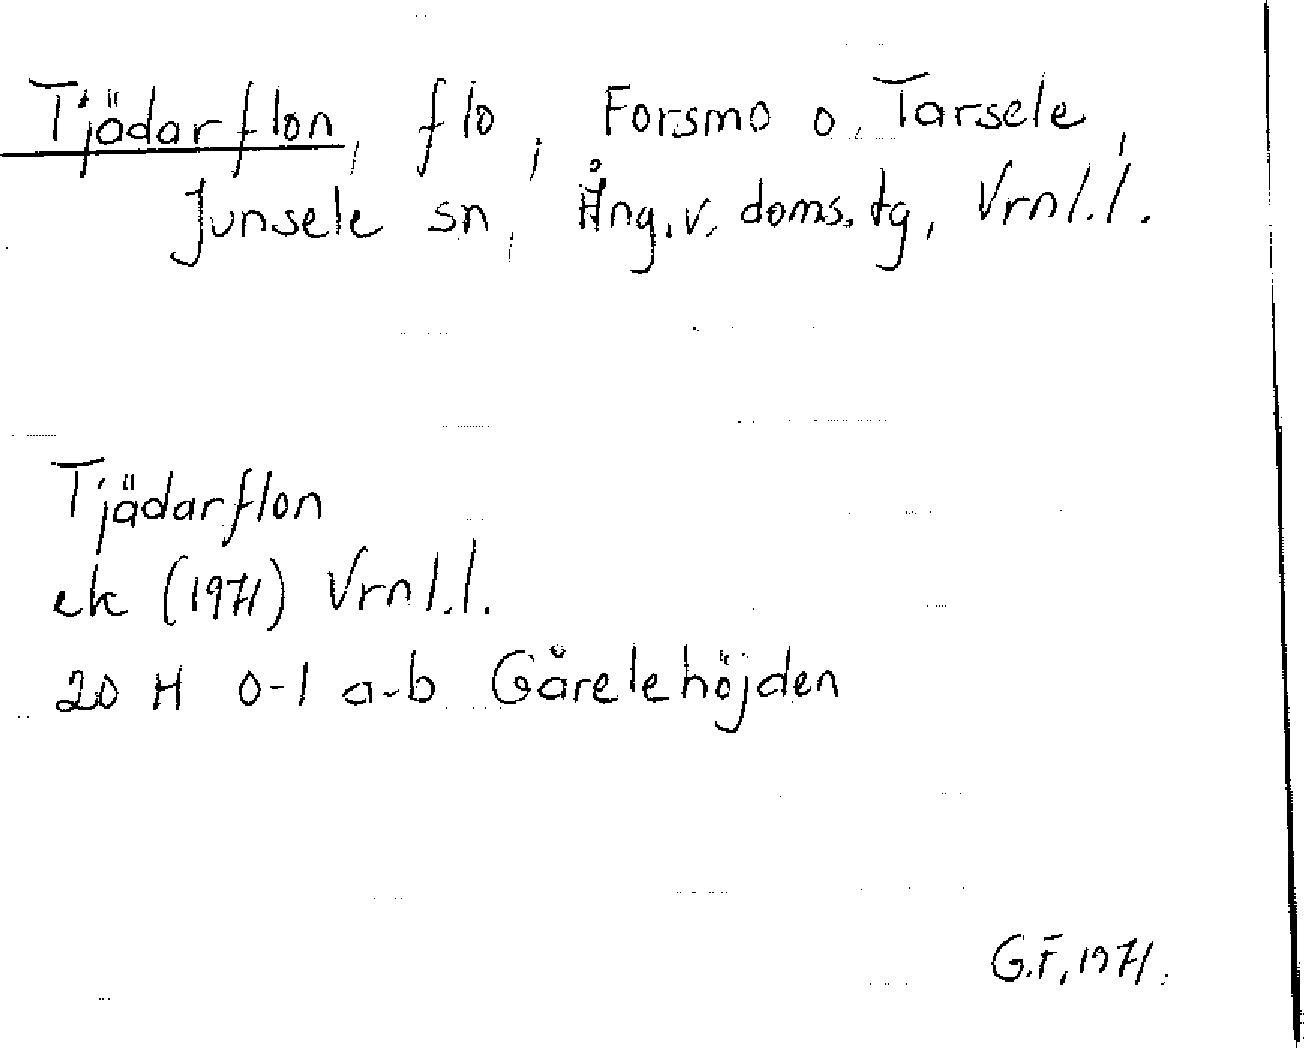 Tjädarflon, flo, Forsmo o. Tarsele,
Junsele sn, Ång. v. doms. tg, Vrnl.l.
Tjädarflon
ek (1971) Vrnl.l.
20 H 0-1 a-b Gårelehöjden
G.F. 1971.